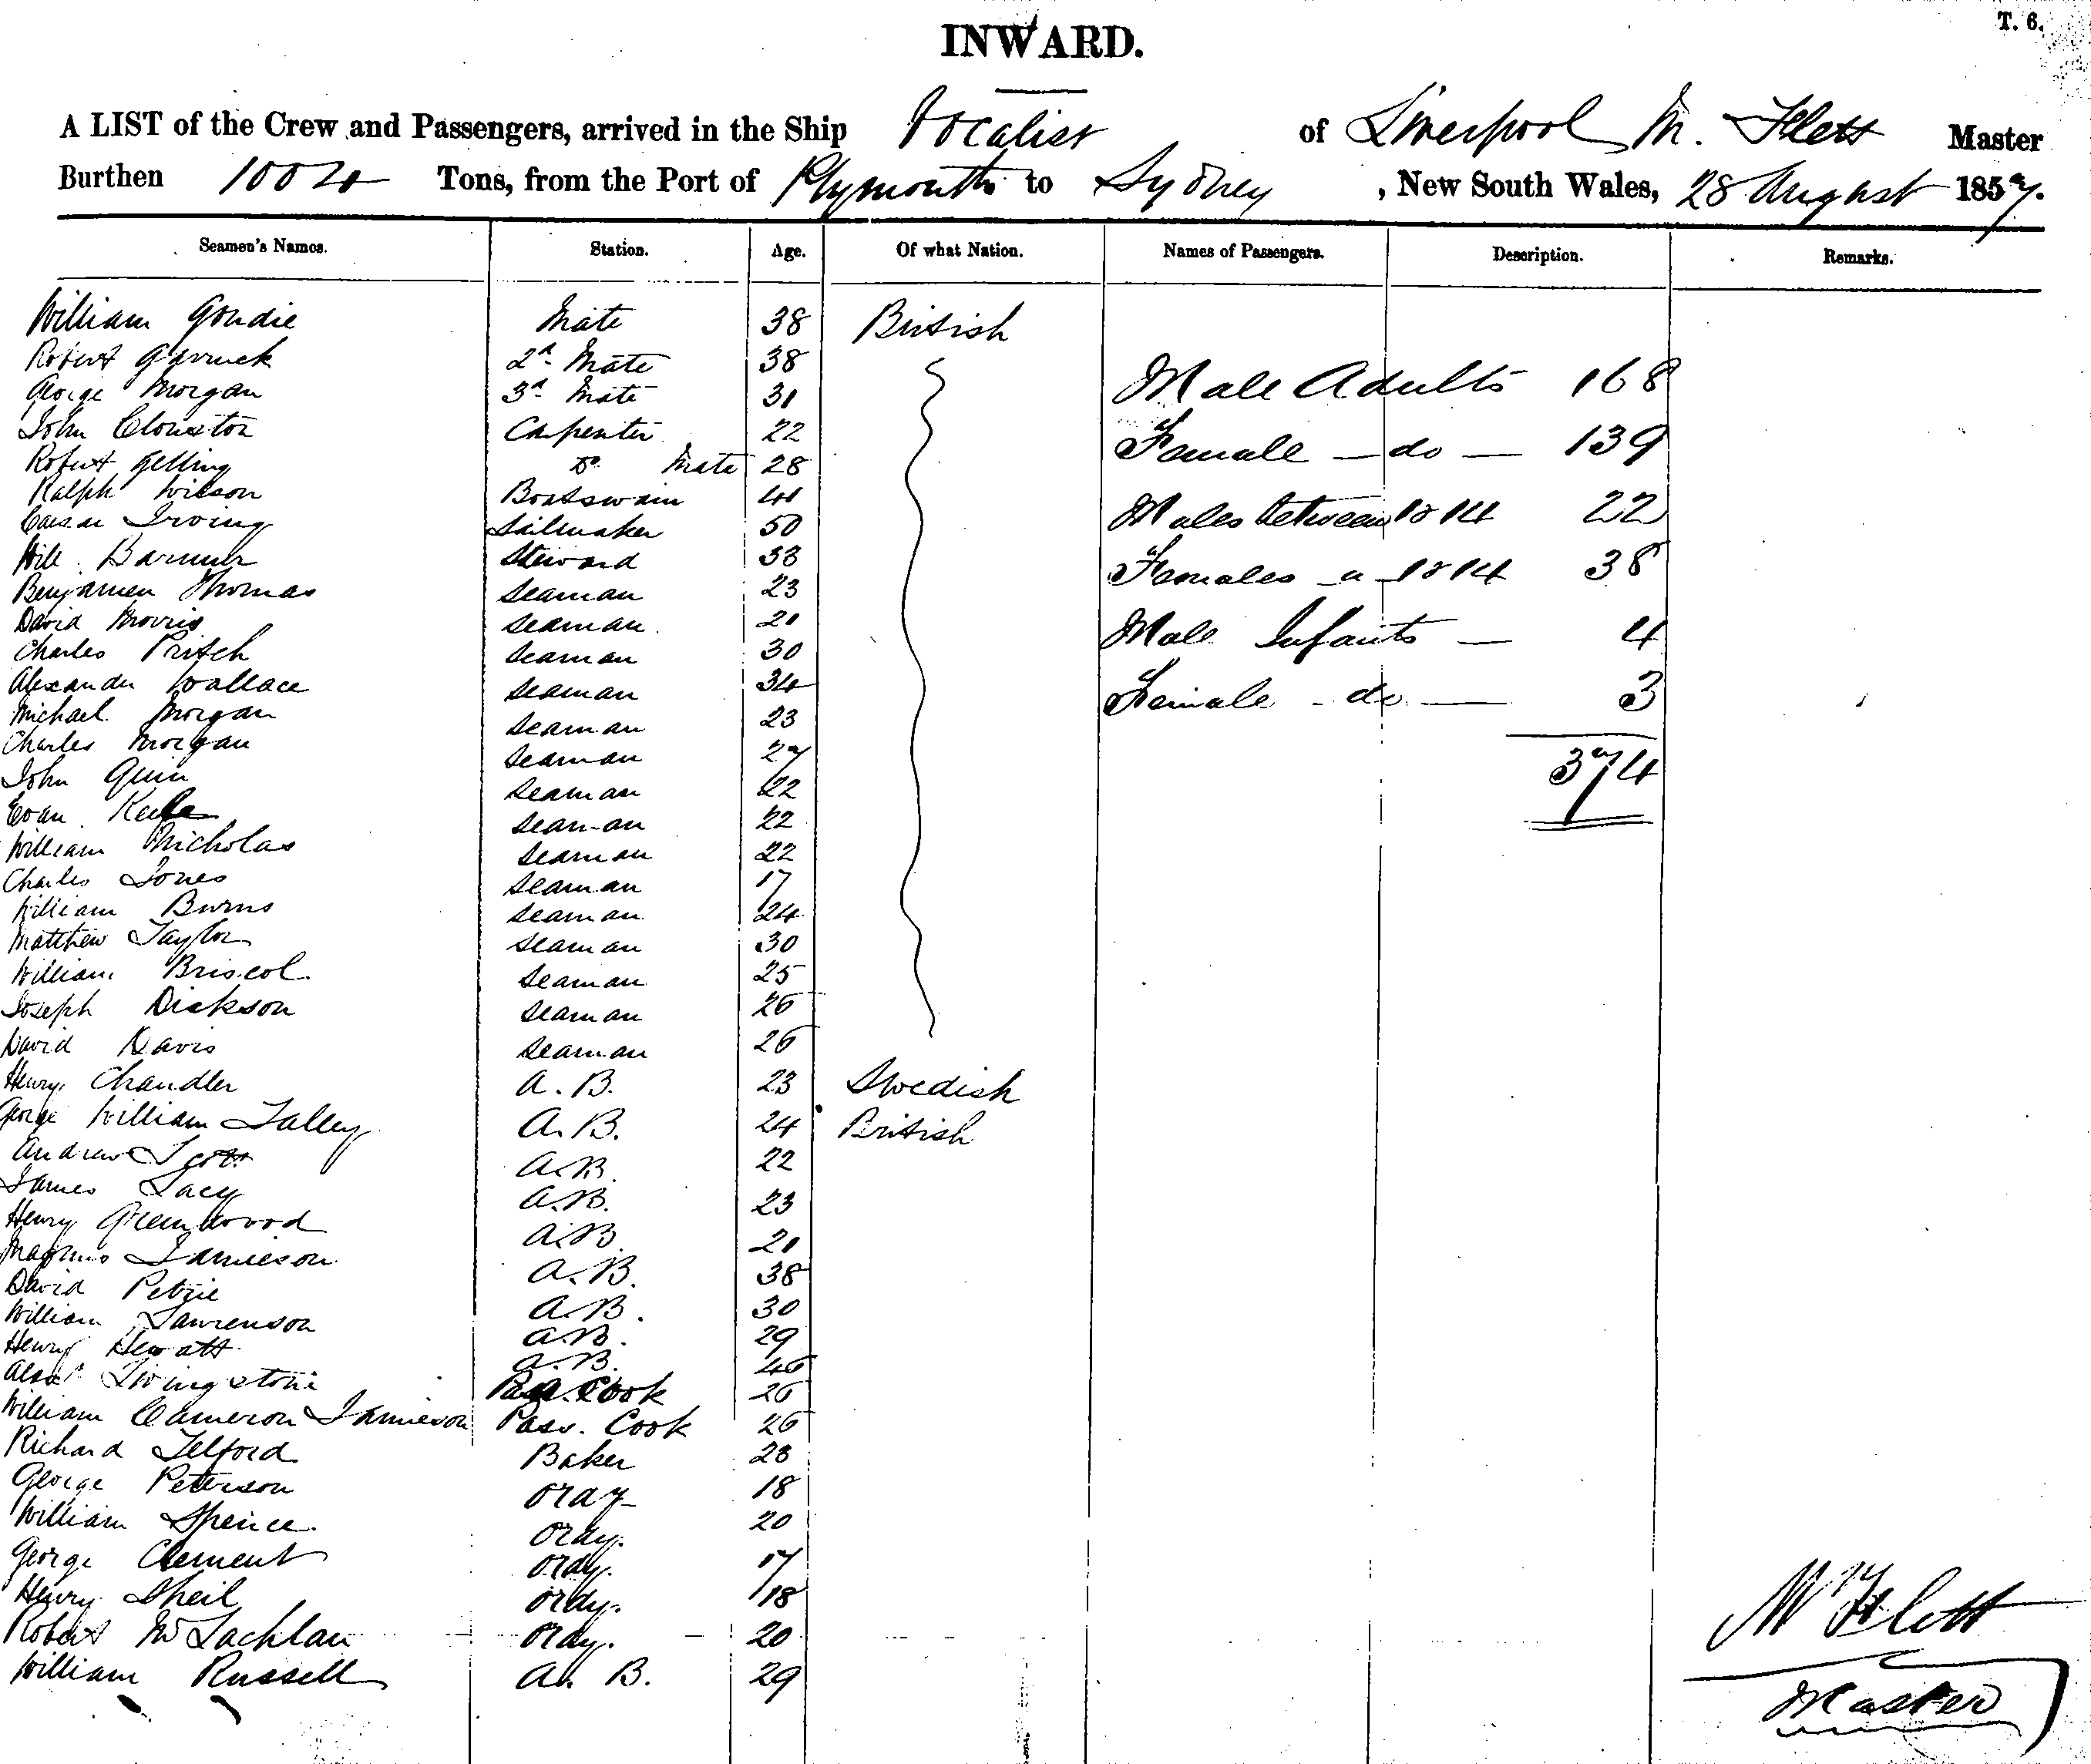 T. 6.
INWARD.
A LIST of the Crew and Passengers, arrived in the Ship Vocalist of Liverpool M. Flett Master
Burthen 1004 Tons, from the Port of Plymouth to Sydney, New South Wales, 28 August 1857.
Seamen's Names. Station. Age. Of what Nation. Names of Passengers. Description. Remarks.
William Goudie Mate 38 British
Robert Garruck 2d. Mate 38
George Morgan 3d. Mate 31 Male Adults 168
John Clouston Carpenter 22
Robert Gelling Do. Mate 28 Female - do - 139
Ralph Wilson Boatswain 41
Caesar Irving Sailmaker 50 Males between 1 & 14 22
Will. Steward 33
Benjamen Thomas Seaman 23 Females - " - 1 & 14 38
David Morris Seaman 21
Charles Pritch Seaman 30 Male Infants - 4
Alexander Wallace Seaman 34
Michael Morgan Seaman 23 Female - do. - 3
Charles Morgan Seaman 27
John Quin Seaman 22 374
Evan Seaman 22
William Nicholas Seaman 22
Charles Jones Seaman 17
William Burns Seaman 24
Matthew Taylor Seaman 30
William Briscol Seaman 25
Joseph Dickson Seaman 26
David Davis Seaman 26
Henry Chandler A. B. 23 Swedish
George William Talley A. B. 24 British
Andrew Scott A. B. 22
James Lacy A. B. 23
Henry Greenwood A. B. 21
Magnus Jamieson A. B. 38
David Petrie A. B. 30
William Lawrenson A. B. 29
Henry Hewatt A. B. 46
Alexr. Livingstone Pass. Cook 26
William Cameron Jamieson Pass. Cook 26
Richard Telford Baker 23
George Peterson Ordy 18
William Spence Ordy. 20
George Clement Ordy. 17
Henry Sheil Ordy. 18
Robert McLachlan Ordy. 20
William Russell A. B. 29
M Flett
Master